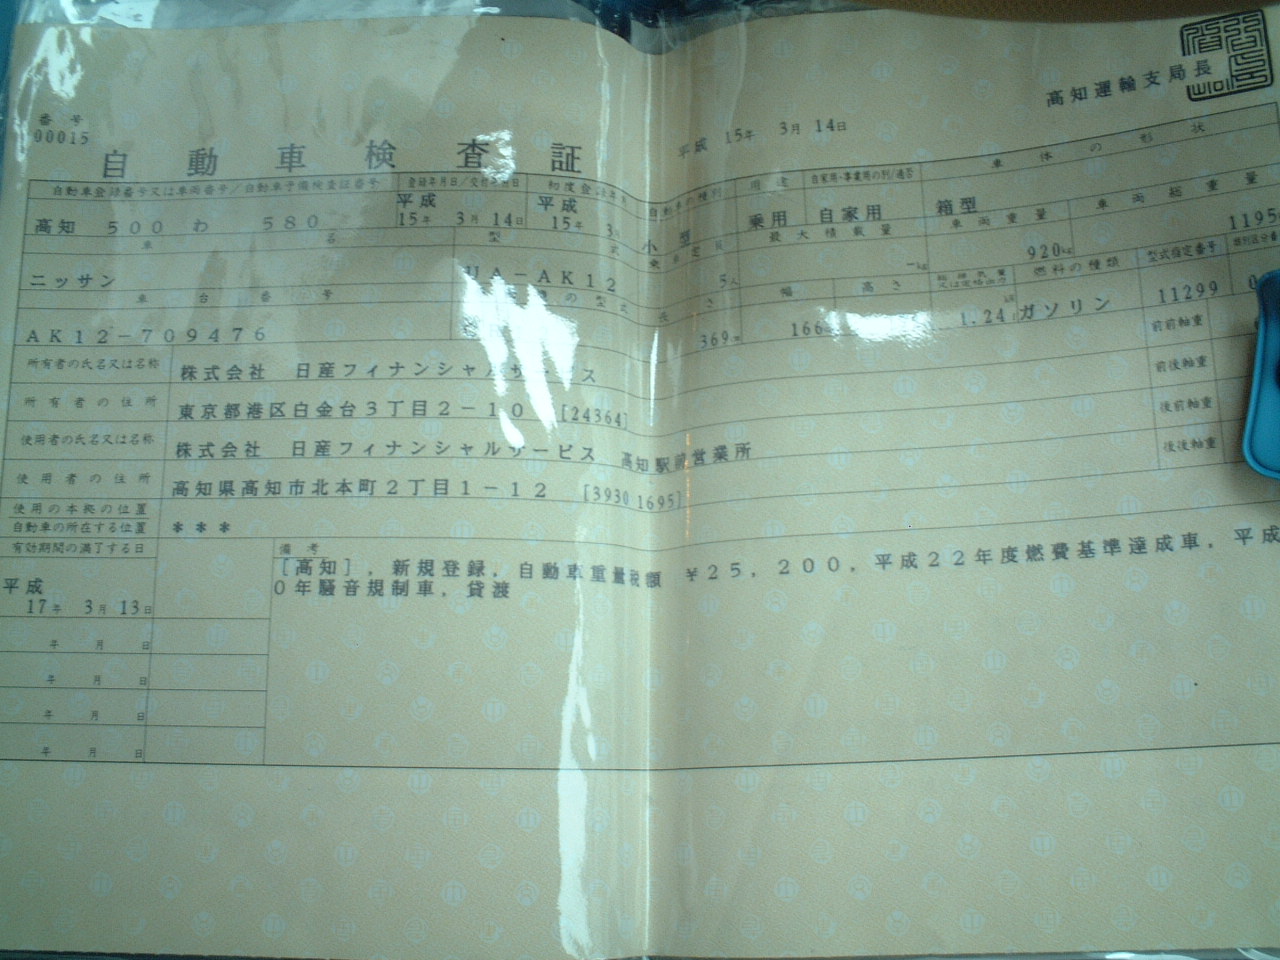 高知運輸支局長
番号
00015
平成 15年 3月 14日
自動車検査証
自動車登録番号又は車両番号／自動車予備検査証番号 登録年月日／交付年月日 初度登録年月 自動車の種別 用途 自家用・事業用の別／適否 車体の形状
高知 500 わ 580 平成 15年 3月 14日 平成 15年 3月 小型 乗用 自家用 箱型
車名 型式 乗車定員 最大積載量 車両重量 車両総重量
ニッサン UA－AK12 5人 －kg 920kg 1195
車台番号 の型式 長さ 幅 高さ 総排気量又は定格出力 燃料の種類 型式指定番号 類別区分番
AK12－709476 369 166 1.24 ガソリン 11299 0
所有者の氏名又は名称 株式会社 日産フィナンシャルサービス 前前軸重
所有者の住所 東京都港区白金台３丁目２－１０ [24364] 前後軸重
使用者の氏名又は名称 株式会社 日産フィナンシャルサービス 高知駅前営業所 後前軸重
使用者の住所 高知県高知市北本町２丁目１－１２ [3930 1695] 後後軸重
使用の本拠の位置
自動車の所在する位置 ＊＊＊
有効期間の満了する日 備考
[高知]，新規登録，自動車重量税額 ￥２５，２００，平成２２年度燃費基準達成車，平成
０年騒音規制車，貸渡
平成
17年 3月 13日
年 月 日
年 月 日
年 月 日
年 月 日